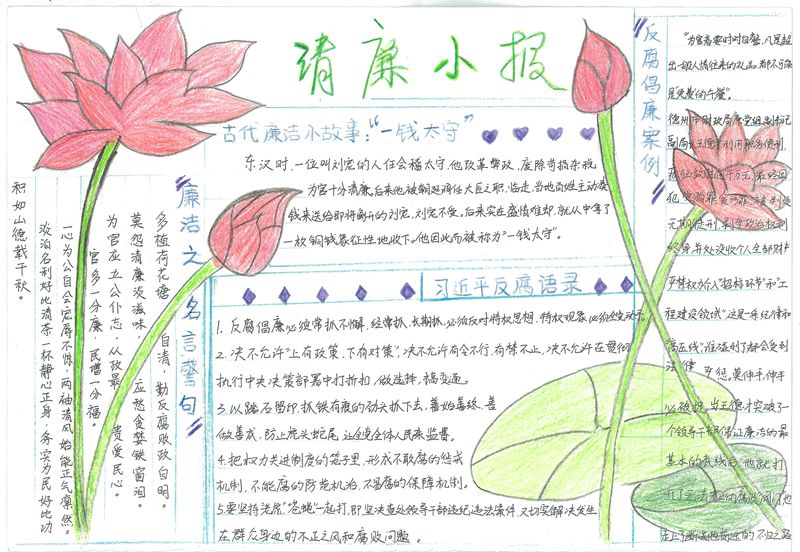 清廉小报
古代廉洁小故事：“一钱太守”
东汉时，一位叫刘宠的人任会稽太守，他改革弊政，废除苛捐杂税，
为官十分清廉。后来他被朝廷调任大臣之职，临走，当地百姓主动凑
钱来送给即将离开的刘宠，刘宠不受。后来实在盛情难却，就从中拿了
一枚铜钱象征性地收下。他因此而被称为“一钱太守”。
廉洁之名言警句
多植荷花塘自清，勤反腐败政自明。
莫怨清廉淡滋味，应愁贪婪铁窗泪。
为官应立公仆志，从政最贵爱民心。
官多一分廉，民增一分福。
一心为公自会宠辱不惊，两袖清风始能正气凛然。
淡泊名利好比清茶一杯静心正身，务实为民好比功
积如山德载千秋。
习近平反腐语录
1. 反腐倡廉必须常抓不懈，经常抓、长期抓，必须反对特权思想、特权现象，必须全党动
2. 决不允许“上有政策，下有对策”，决不允许有令不行，有禁不止，决不允许在贯彻
执行中央决策部署中打折扣，做选择，搞变通。
3. 以踏石留印、抓铁有痕的劲头抓下去，善始善终、善
做善成，防止虎头蛇尾，让全党全体人民来监督。
4. 把权力关进制度的笼子里，形成不敢腐的惩戒
机制，不能腐的防范机制，不易腐的保障机制。
5. 要坚持“老虎”“苍蝇”一起打，即坚决查处领导干部违纪违法案件，又切实解决发生
在群众身边的不正之风和腐败问题。
反腐倡廉案例
“为官者要时时自警，凡是超
出一般人情往来的礼品，都不可能
是免费的午餐”。
德州市财政局原党组副书记
副局长王德才利用职务便利，
无期徒刑，剥夺政治权利
终身，并处没收个人全部财产
严禁权力介入“招标环节”和“工
程建设领域”这是一条纪律和
法律“高压线”，谁碰到了都会受到
莫伸手，伸手
必被捉。当王德才突破了
一个领导干部保证廉洁的最
基本的底线后，他就打